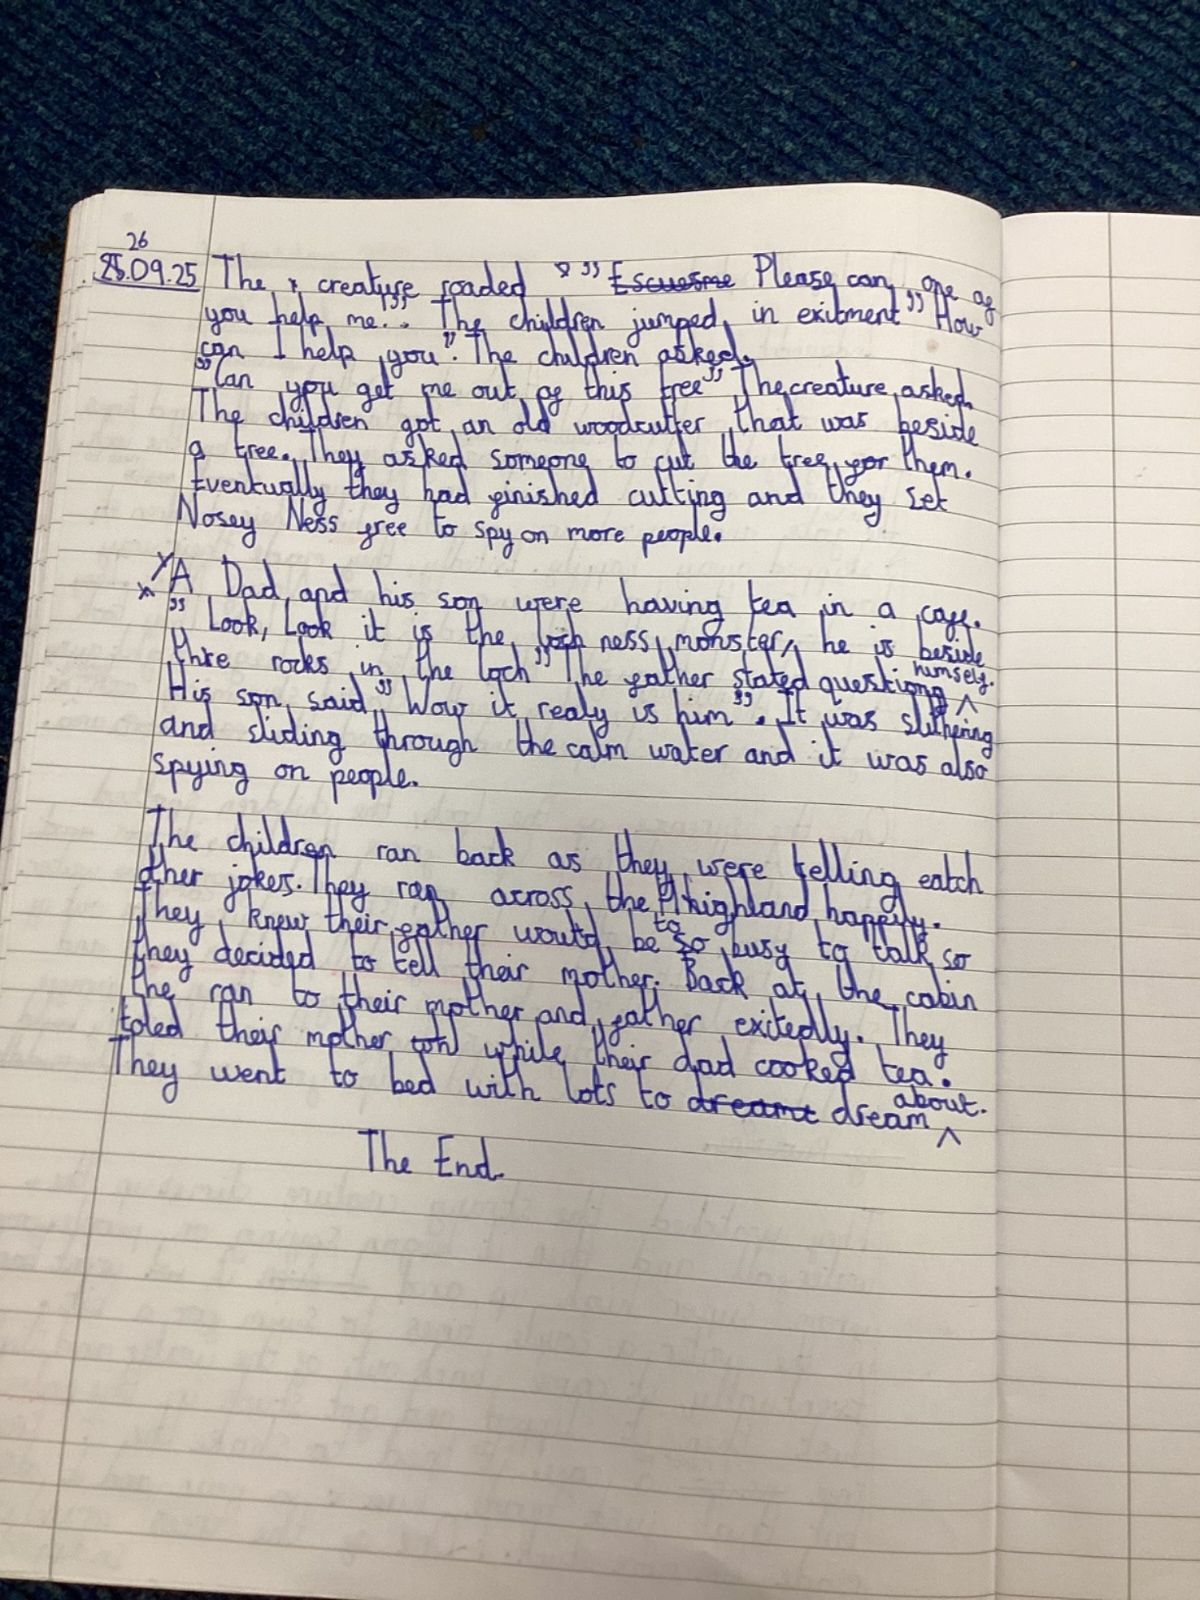 26
25.09.25 The creature roaded " Escuesme Please can one of
you help me." The children jumped in exitment " How
can I help you". The children asked.
"Can you get me out of this tree" The creature asked.
The children got an old woodcutter that was beside
a tree. They asked someone to cut the tree for them.
Eventually they had finished cutting and they set
Nosey Ness free to spy on more people.
A Dad and his son were having tea in a cafe.
" Look, Look it is the loch ness monster, he is beside
thre rocks in the loch" The father stated questiong himself.
His son said " Wow it realy is him". It was slithering
and sliding through the calm water and it was also
spying on people.
The children ran back as they were telling eatch
other jokes. They ran across the highland happily.
They knew their father would be to so busy to talk so
they decided to tell their mother. Back at the cabin
the ran to their mother and father exitedly. They
toled their mother while their dad cooked tea.
They went to bed with lots to dreamt dream about.
The End.